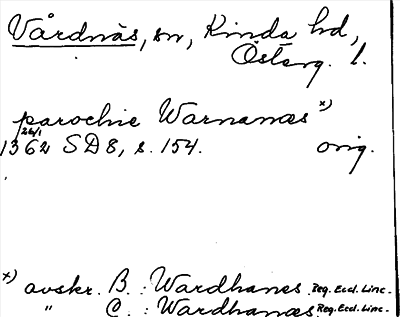 Vårdnäs, sn, Kinda hd,
Östерg. l.
parochie Warnanæs x)
26/1
1362 SD 8, s. 154. orig.
x) avskr. B. : Wardhanes Reg. Eccl. Linc.
" C. : Wardhanæs Reg. Eccl. Linc.